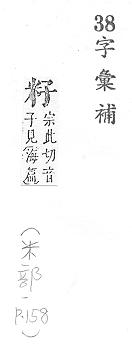 38字彙補
籽
宗此切音
子見海篇
(米部-P.158)